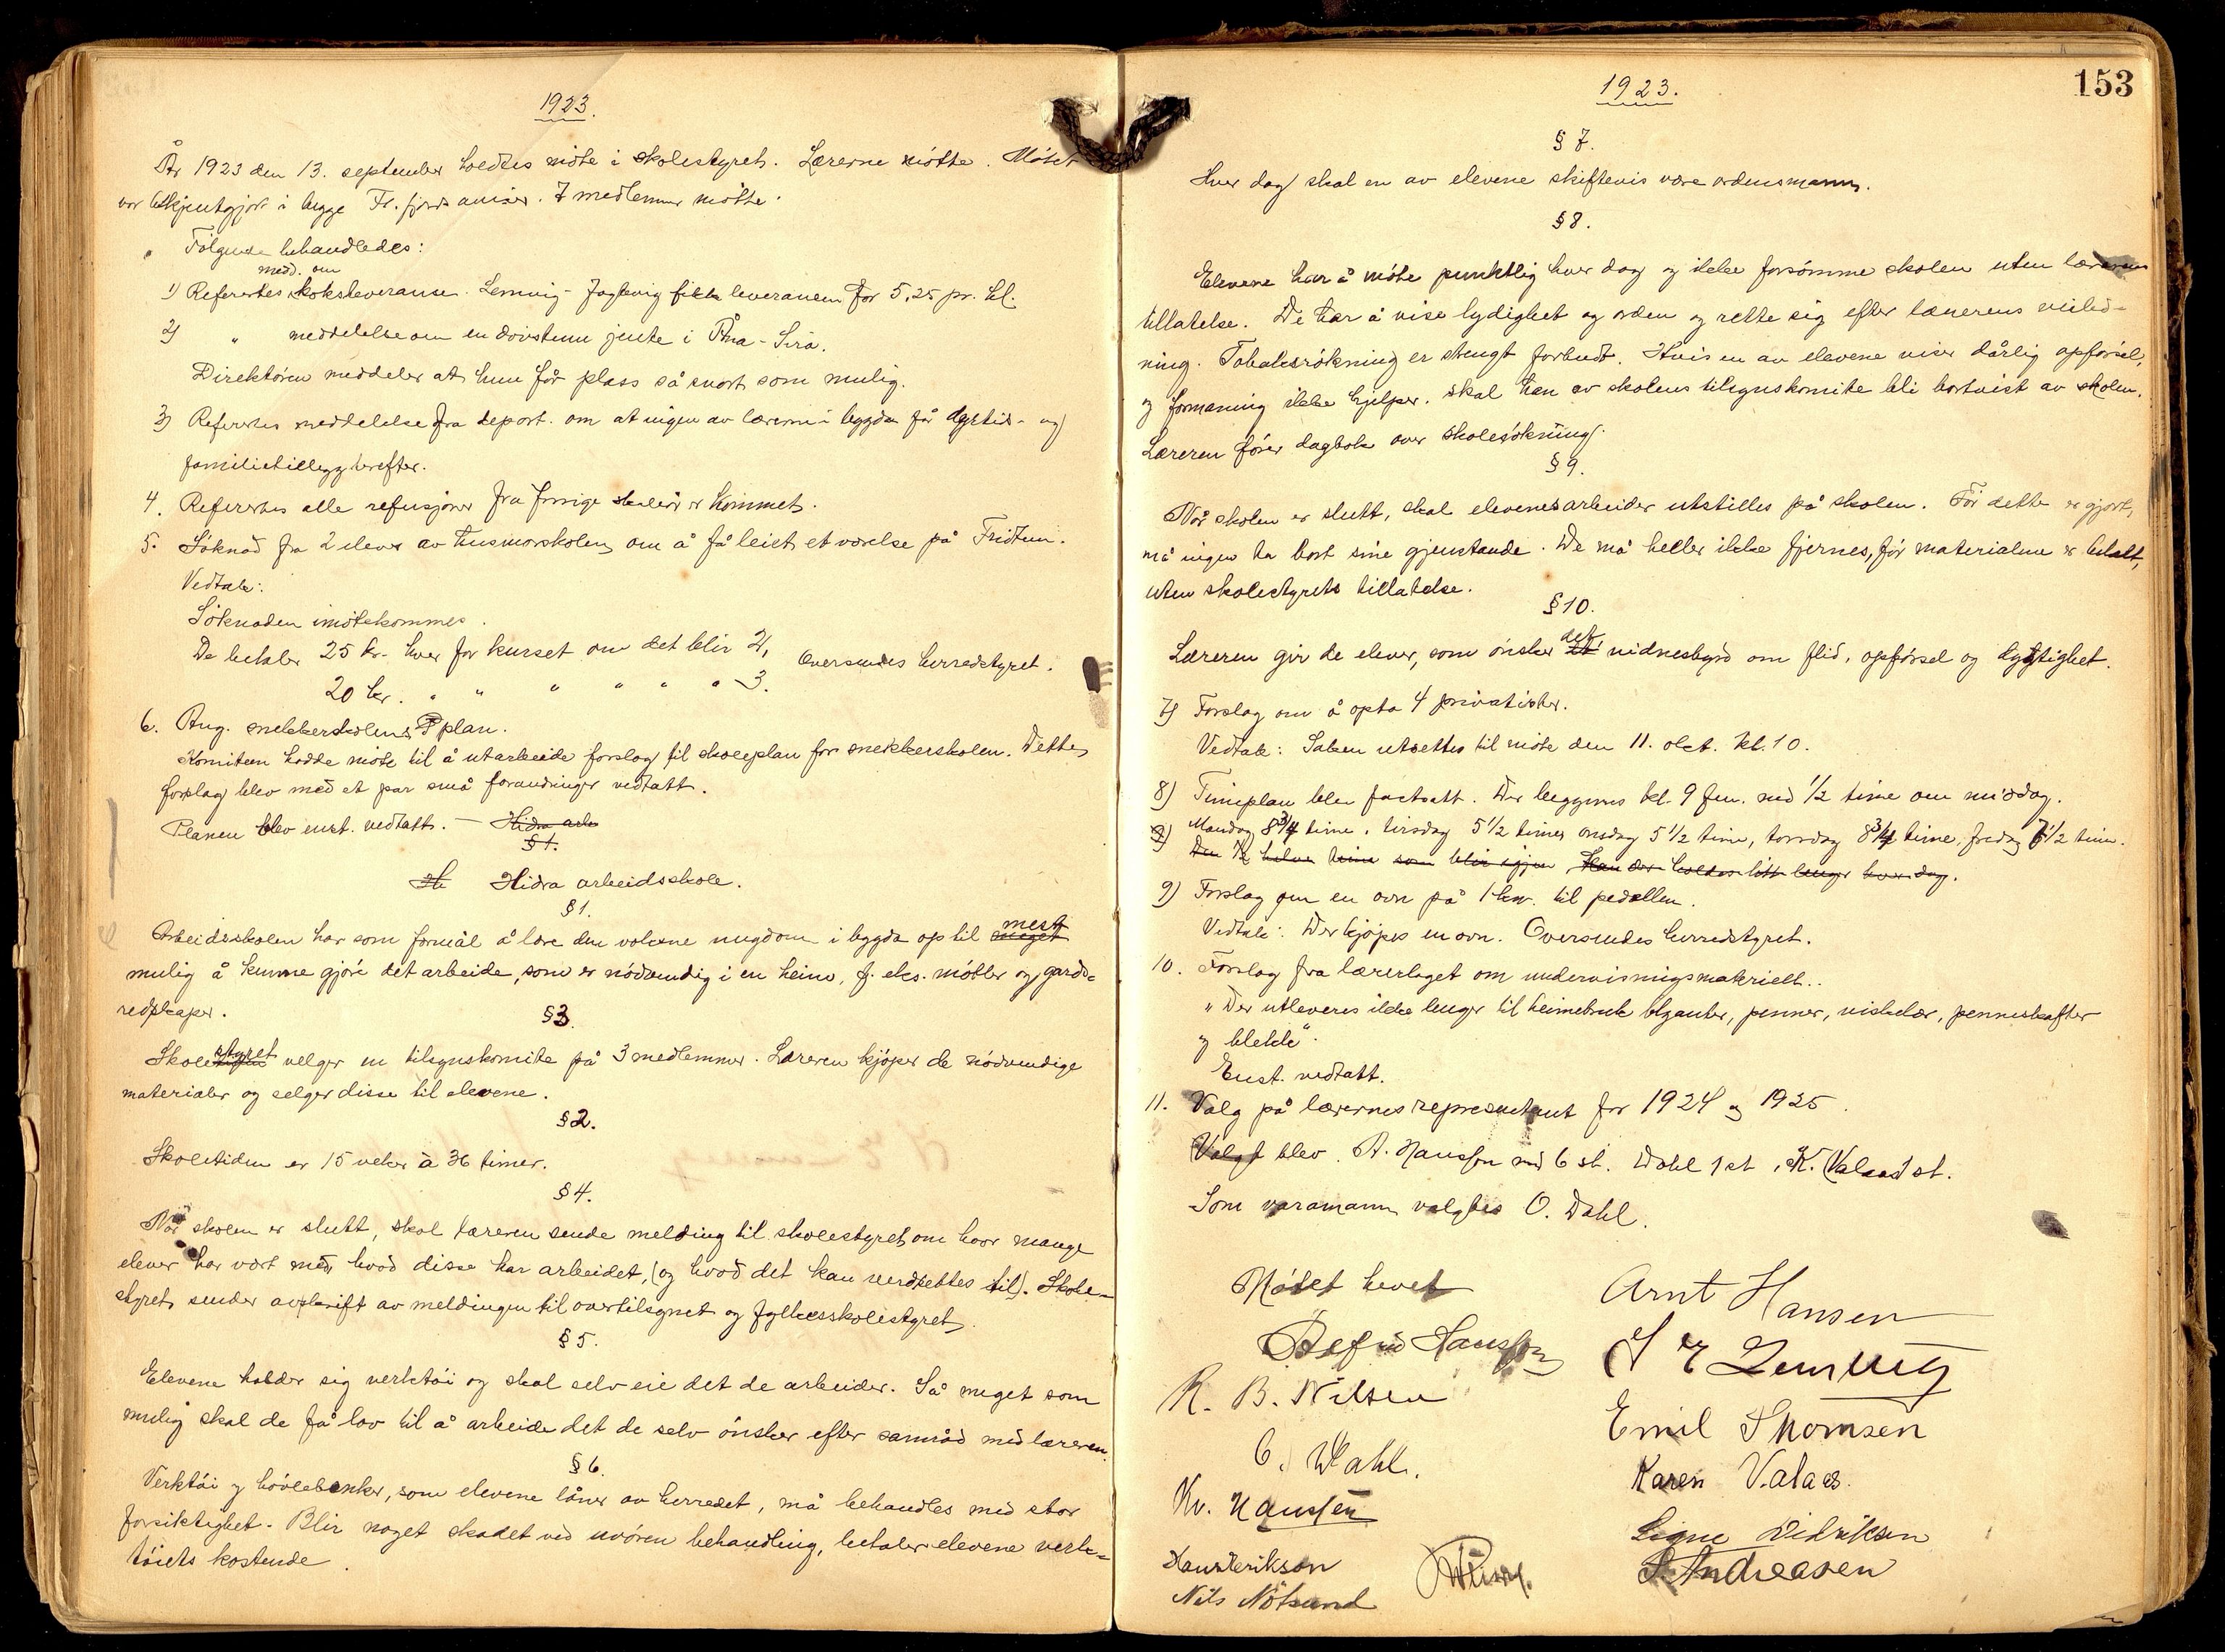 1923.
År 1923 den 13. september holdtes møte i skolestyret. Lærerne møtte. Møtet
var bekjentgjort i begge Fl. fjords aviser. 7 medlemmer møtte.
Følgende behandledes:
medd. om
1) Referertes koksleveranse. Lemvig - Jøglevig fikk leveransen for 5,25 pr. hl.
2) " meddelelse om en døvstum jente i Åna-Sira.
Direktøren meddeler at hun får plass så snart som mulig.
3) Referertes meddelelse fra depart. om at ingen av lærerne i bygda får dyrtids- og
familietillegg herefter.
4. Refererts alle refusjoner fra forrige skoleår er kommet.
5. Søknad fra 2 elever av husmorskolen om å få leiet et værelse på Fridtun.
Vedtak:
Søknaden imøtekommes.
De betaler 25 kr. hver for kurset om det blir 2,
20 kr. " " " " " " 3. Oversendes herredstyret.
6. Ang. snekkerskolens plan.
Komiteen hadde møte til å utarbeide forslag til skoleplan for snekkerskolen. Dette
forslag blev med et par små forandringer vedtatt.
Planen blev enst. vedtatt. — Hidra arb
§1.
H Hidra arbeidsskole.
§1.
Arbeidsskolen har som formål å lære den voksne ungdom i bygda op til meget mest
mulig å kunne gjøre det arbeide, som er nødvendig i en heim, f. eks. møbler og gards-
redskaper.
§3.
Skolestyret velger en tilsynskomite på 3 medlemmer. Læreren kjøper de nødvendige
materialer og selger disse til elevene.
§2.
Skoletiden er 15 veker à 36 timer.
§4.
Når skolen er slutt, skal læreren sende melding til skolestyret om hvor mange
elever har vært med, hvad disse har arbeidet, (og hvad det kan verdsettes til). Skole-
styret sender avskrift av meldingen til overtilsynet og fylkesskolestyret.
§5.
Elevene holder sig verktøi og skal selv eie det de arbeider. Så meget som
mulig skal de få lov til å arbeide det de selv ønsker efter samråd med læreren.
§6.
Verktøi og høvlebenker, som elevene låner av herredet, må behandles med stor
forsiktighet. Blir noget skadet ved uvøren behandling, betaler elevene verk-
tøiets kostende.
153
1923.
§7.
Hver dag skal en av elevene skiftevis være ordensmann.
§8.
Elevene har å møte punktlig hver dag og ikke forsømme skolen uten lærerens
tillatelse. De har å vise lydighet og orden og rette sig efter lærerens veiled-
ning. Tobaksrøkning er strengt forbudt. Hvis en av elevene viser dårlig opførsel,
og formaning ikke hjelper, skal han av skolens tilsynskomite bli bortvist av skolen.
Læreren fører dagbok over skolesøkning.
§9.
Når skolen er slutt, skal elevenes arbeider utstilles på skolen. Før dette er gjort,
må ingen ta bort sine gjenstande. De må heller ikke fjernes, før materialene er betalt,
uten skolestyrets tillatelse.
§10.
Læreren gir de elever, som ønsker det vidnesbyrd om flid, opførsel og dygtighet.
7) Forslag om å opta 4 privatister.
Vedtak: Saken utsettes til møte den 11. okt. kl. 10.
8) Timeplan blev fastsatt. Der begynnes kl. 9 fm. med 1/2 time om middag.
Mandag 8 3/4 time, tirsdag 5 1/2 timer onsdag 5 1/2 time, torsdag 8 3/4 time, fredag 7 1/2 time.
9) Den 1/2 halve time som blir igjen, kan der holdes litt lenger hver dag.
9) Forslag om en ovn på 1 kw. til pedellen.
Vedtak: Der kjøpes en ovn. Oversendes herredstyret.
10. Forslag fra lærerlaget om undervisningsmateriell.
"Der utleveres ikke lenger til heimebruk blyanter, penner, viskelær, penneskafter
og blekk".
Enst. vedtatt.
11. Valg på lærernes representant for 1924 og 1925.
Valgt blev A. Hansson med 6 st. Dahl 1 st, K. Valaas 1 st.
Som varamann valgtes O. Dahl.
Møtet hevet
Arnt Hansen
Hansson
Lemvig
R. B. Nilsen
Emil Thomsen
O. Dahl.
Karen Valaas.
Kv. Hanssen
Signe Didriksen
Hans Erikson
S. Andreasen
Nils Nötsund